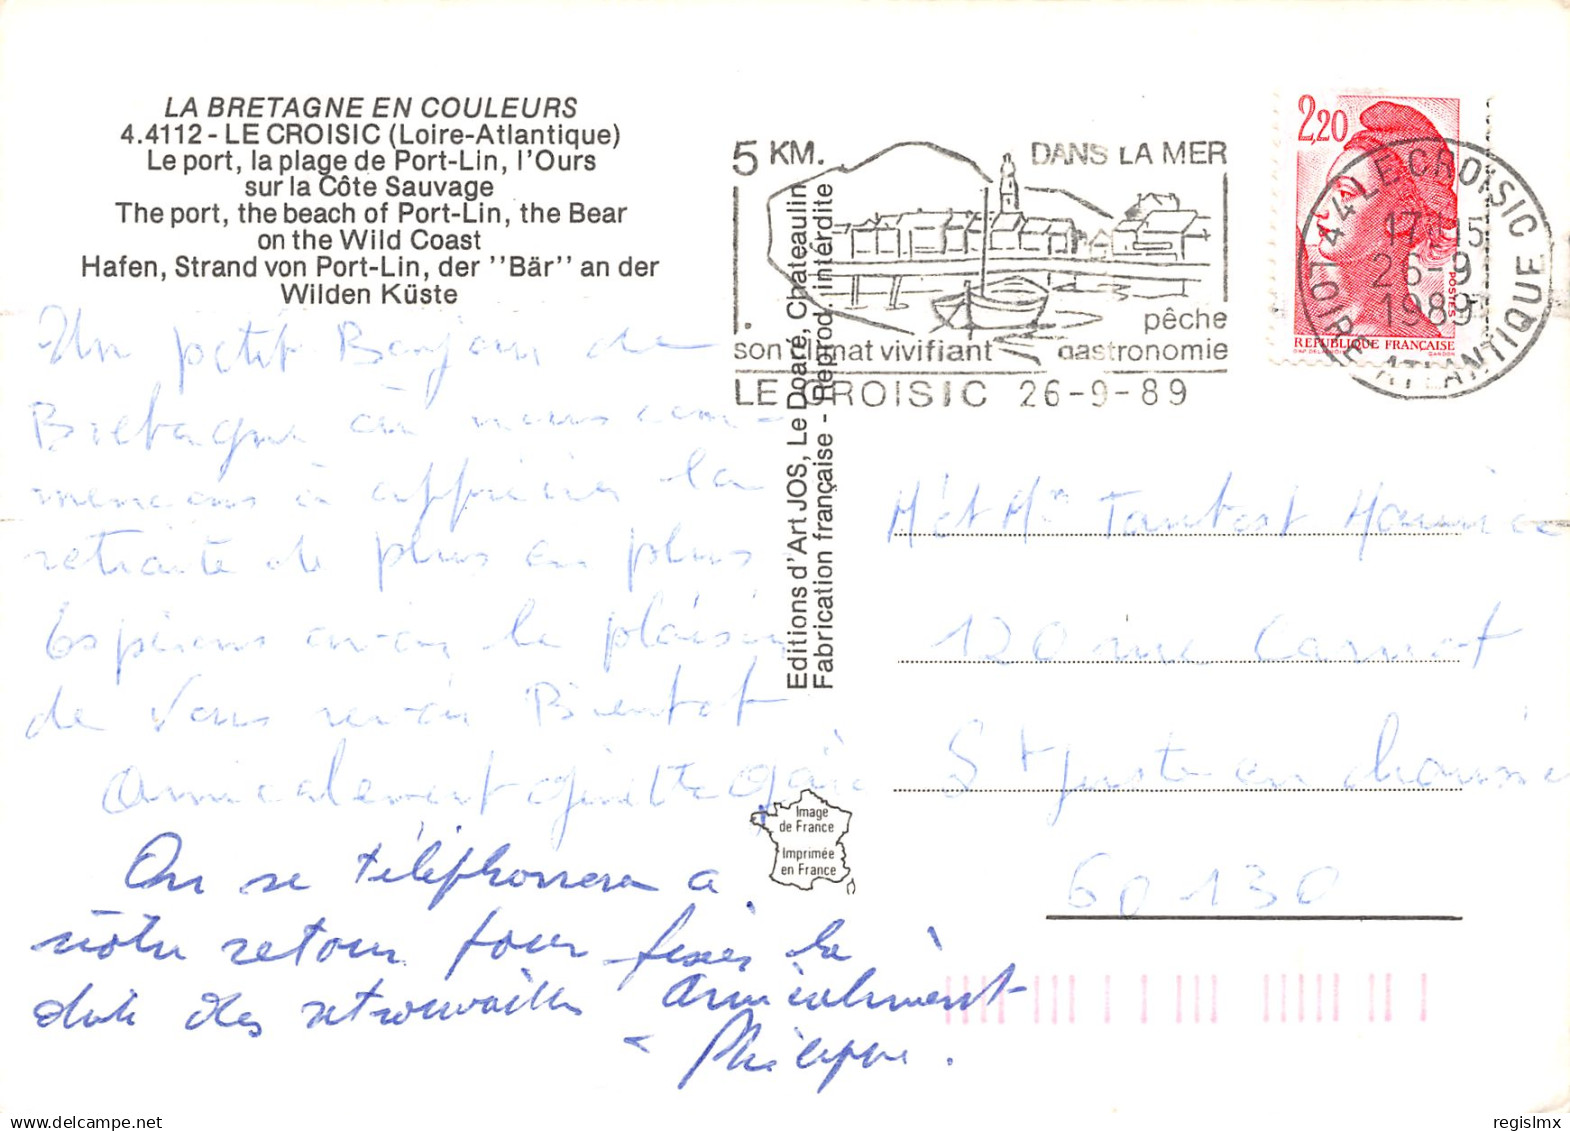 LA BRETAGNE EN COULEURS
4.4112 - LE CROISIC (Loire-Atlantique)
Le port, la plage de Port-Lin, l'Ours
sur la Côte Sauvage
The port, the beach of Port-Lin, the Bear
on the Wild Coast
Hafen, Strand von Port-Lin, der ''Bär'' an der
Wilden Küste
Un petit Bonjour de
Bretagne où nous com-
mencons à apprécier la
retraite de plus en plus
Espérons avoir le plaisir
de Vous revoir Bientot
Amicalement ginette
On se téléphonera a
nôtre retour pour fixer la
date des retrouvailles Amicalement
Philippe.
Editions d'Art JOS, Le Doaré, Châteaulin
Fabrication française - Reprod. interdite
5 KM. DANS LA MER
pêche
son climat vivifiant gastronomie
LE CROISIC 26-9-89
2,20
POSTES
REPUBLIQUE FRANÇAISE
GANDON
44 LE CROISIC
17H15
26-9
1989
LOIRE ATLANTIQUE
M et Mm Tautest Maurice
120 rue Carnot
St Juste en chaussée
60130
Image
de France
Imprimée
en France
regislmx